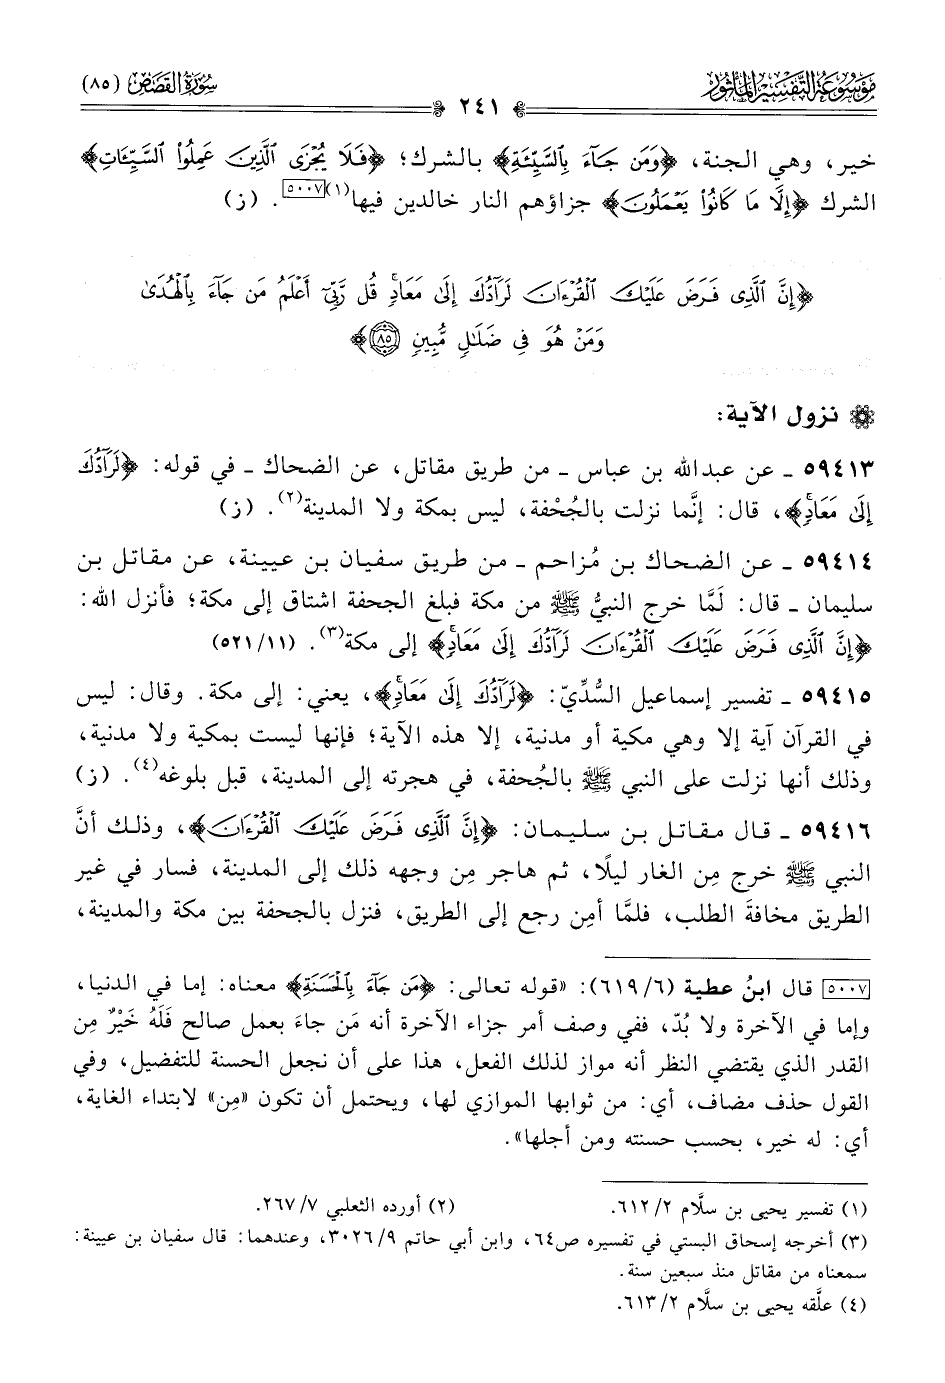 مَوْسُوعَةُ التَّفْسِيرِ المَأْثُورِ
سُورَةُ القَصَصِ (٨٥)
٢٤١
خير، وهي الجنة، ﴿وَمَن جَآءَ بِٱلسَّيِّئَةِ﴾ بالشرك؛ ﴿فَلَا يُجْزَى ٱلَّذِينَ عَمِلُوا۟ ٱلسَّيِّـَٔاتِ﴾
الشرك ﴿إِلَّا مَا كَانُوا۟ يَعْمَلُونَ﴾ جزاؤهم النار خالدين فيها(١)[٥٠٠٧]. (ز)
﴿إِنَّ ٱلَّذِى فَرَضَ عَلَيْكَ ٱلْقُرْءَانَ لَرَآدُّكَ إِلَىٰ مَعَادٍ ۚ قُل رَّبِّىٓ أَعْلَمُ مَن جَآءَ بِٱلْهُدَىٰ
وَمَنْ هُوَ فِى ضَلَـٰلٍ مُّبِينٍ ٨٥﴾
نزول الآية:
٥٩٤١٣ ـ عن عبدالله بن عباس ـ من طريق مقاتل، عن الضحاك ـ في قوله: ﴿لَرَآدُّكَ
إِلَىٰ مَعَادٍ﴾، قال: إنَّما نزلت بالجُحْفة، ليس بمكة ولا المدينة(٢). (ز)
٥٩٤١٤ ـ عن الضحاك بن مُزاحم ـ من طريق سفيان بن عيينة، عن مقاتل بن
سليمان ـ قال: لَمَّا خرج النبيُّ ﷺ من مكة فبلغ الجحفة اشتاق إلى مكة؛ فأنزل الله:
﴿إِنَّ ٱلَّذِى فَرَضَ عَلَيْكَ ٱلْقُرْءَانَ لَرَآدُّكَ إِلَىٰ مَعَادٍ﴾ إلى مكة(٣). (١١/ ٥٢١)
٥٩٤١٥ ـ تفسير إسماعيل السُّدِّيّ: ﴿لَرَآدُّكَ إِلَىٰ مَعَادٍ﴾، يعني: إلى مكة. وقال: ليس
في القرآن آية إلا وهي مكية أو مدنية، إلا هذه الآية؛ فإنها ليست بمكية ولا مدنية،
وذلك أنها نزلت على النبي ﷺ بالجُحفة، في هجرته إلى المدينة، قبل بلوغه(٤). (ز)
٥٩٤١٦ ـ قال مقاتل بن سليمان: ﴿إِنَّ ٱلَّذِى فَرَضَ عَلَيْكَ ٱلْقُرْءَانَ﴾، وذلك أنَّ
النبي ﷺ خرج مِن الغار ليلًا، ثم هاجر مِن وجهه ذلك إلى المدينة، فسار في غير
الطريق مخافةَ الطلب، فلمَّا أمِن رجع إلى الطريق، فنزل بالجحفة بين مكة والمدينة،
[٥٠٠٧] قال ابنُ عطية (٦/ ٦١٩): «قوله تعالى: ﴿مَن جَآءَ بِٱلْحَسَنَةِ﴾ معناه: إما في الدنيا،
وإما في الآخرة ولا بُدّ، ففي وصف أمر جزاء الآخرة أنه مَن جاءَ بعمل صالح فَلَهُ خَيْرٌ مِن
القدر الذي يقتضي النظر أنه مواز لذلك الفعل، هذا على أن نجعل الحسنة للتفضيل، وفي
القول حذف مضاف، أي: من ثوابها الموازي لها، ويحتمل أن تكون «مِن» لابتداء الغاية،
أي: له خير، بحسب حسنته ومن أجلها».
(١) تفسير يحيى بن سلَّام ٢/ ٦١٢. (٢) أورده الثعلبي ٧/ ٢٦٧.
(٣) أخرجه إسحاق البستي في تفسيره ص٦٤، وابن أبي حاتم ٩/ ٣٠٢٦، وعندهما: قال سفيان بن عيينة:
سمعناه من مقاتل منذ سبعين سنة.
(٤) علَّقه يحيى بن سلَّام ٢/ ٦١٣.